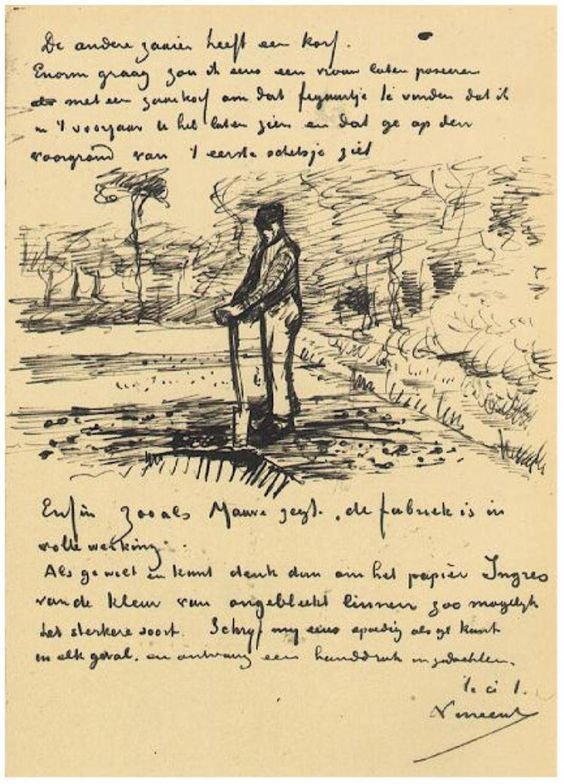 De andere zaaier heeft een korf.
Enorm graag zou ik eens een vrouw laten poseeren
met een zaaikorf om dat figuurtje te vinden dat ik
U in 't voorjaar heb laten zien en dat ge op den
voorgrond van 't eerste schetsje ziet
Enfin zooals Mauve zegt, de fabriek is in
volle werking.
Als ge wilt en kunt denk dan om het papier Ingres
van de kleur van ongebleekt linnen zoo mogelijk
het sterkere soort. Schryf my eens spoedig als ge kunt
in elk geval, en ontvang een handdruk in gedachten.
t.à t.
Vincent